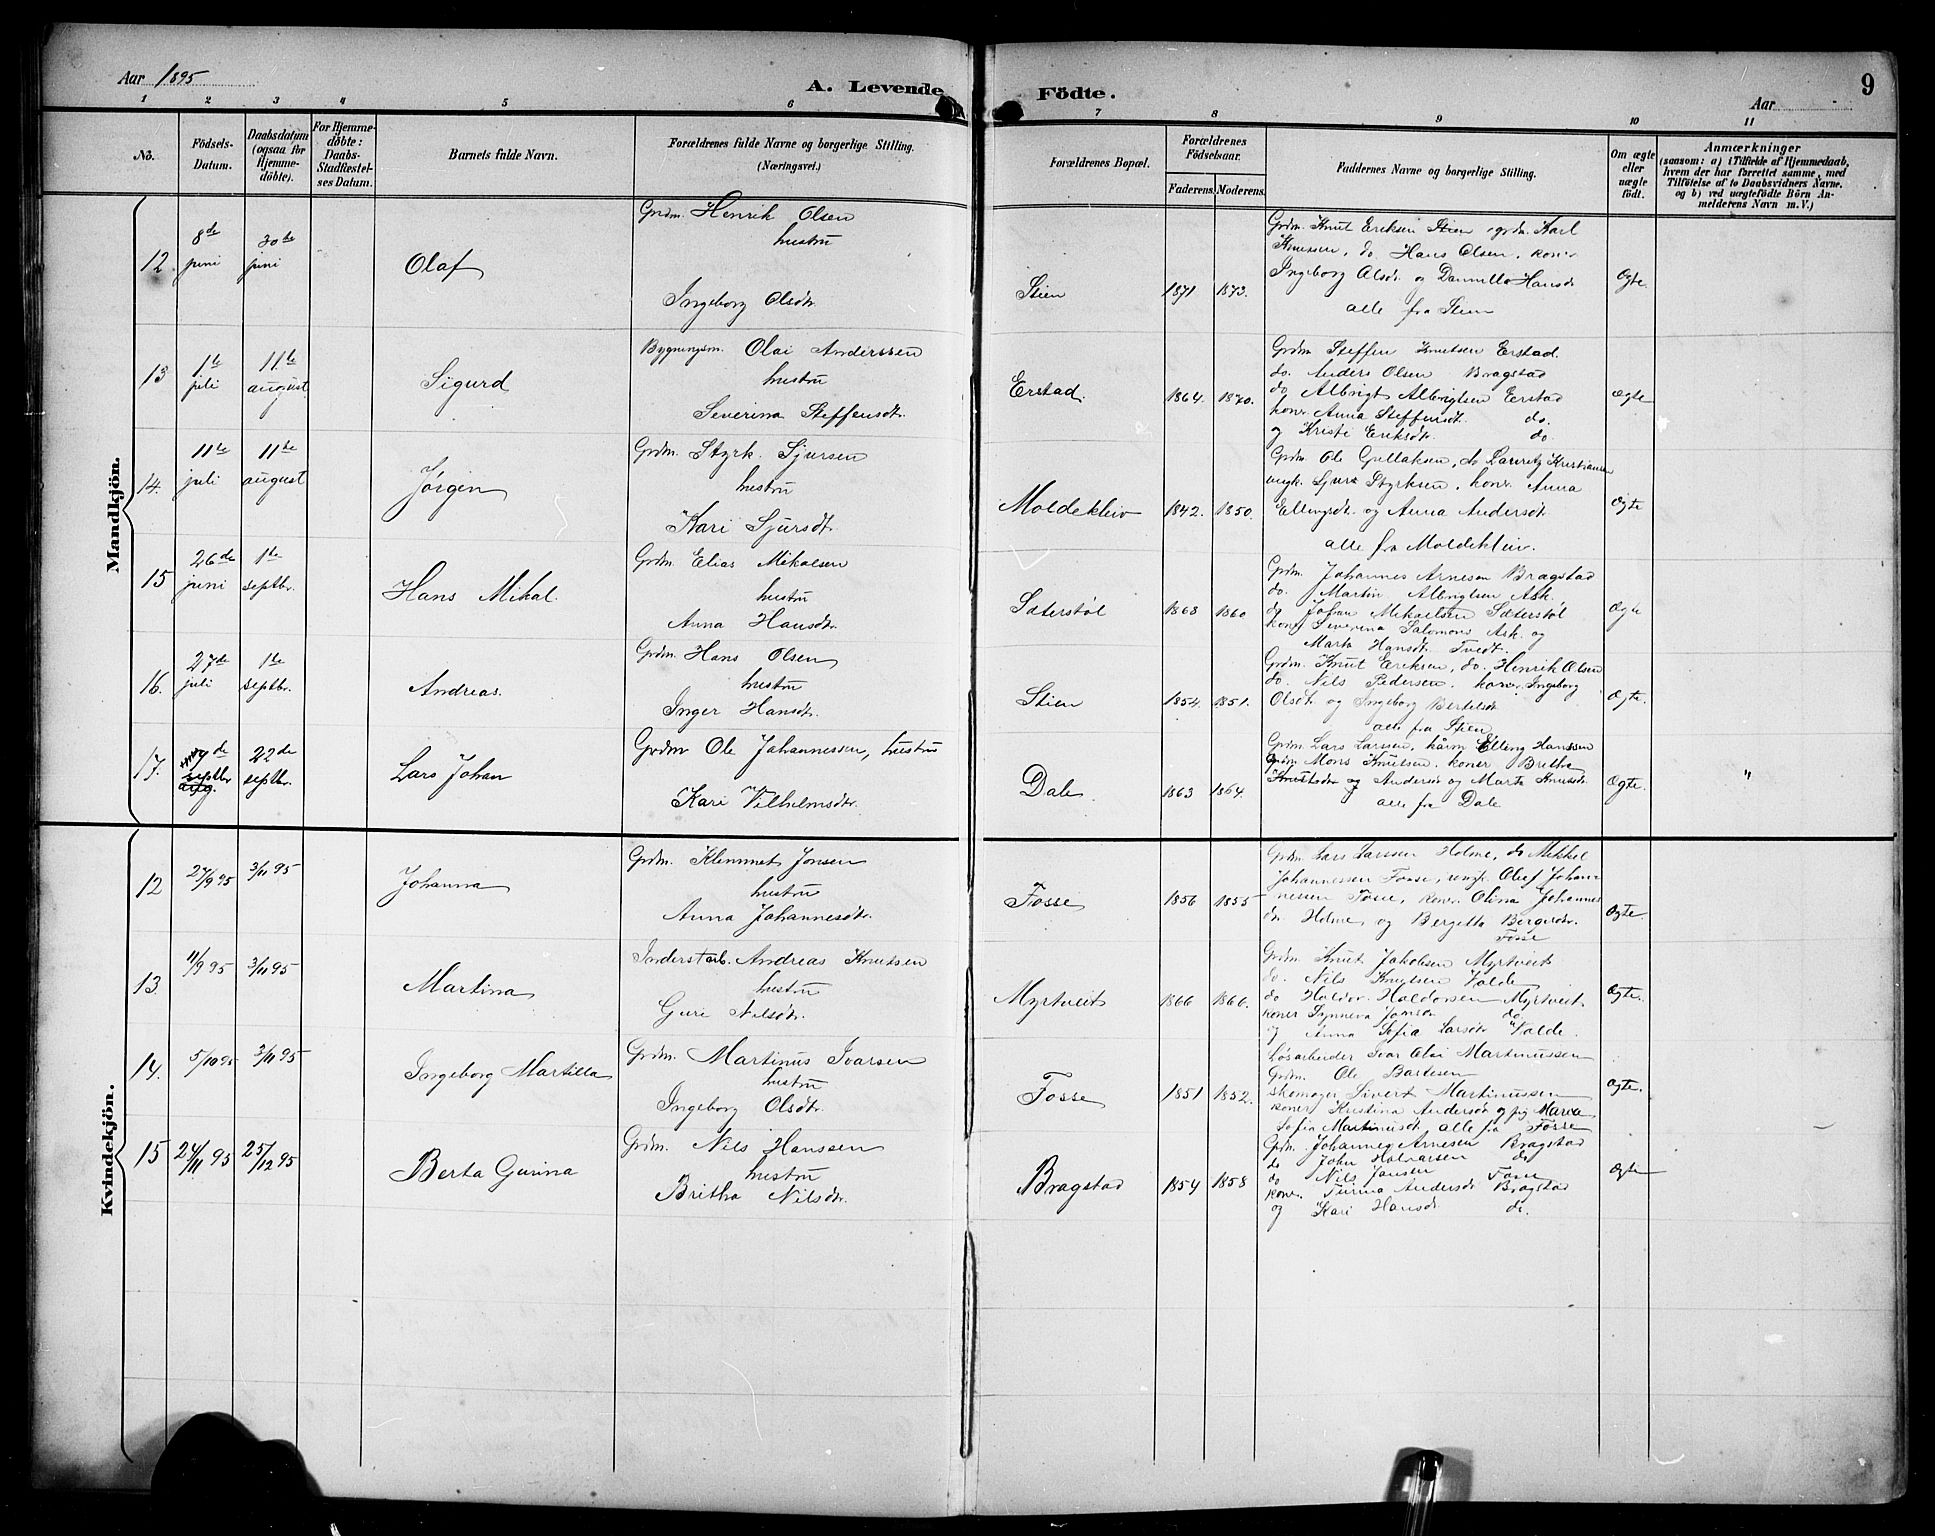 Aar 1895
A. Levende Födte.
9
Aar
1 2 3 4 5 6 7 8 9 10 11
No.
Födsels-Datum.
Daabsdatum (ogsaa for Hjemmedöbte).
For Hjemmedöbte: Daabs-Stadfæstelses Datum.
Barnets fulde Navn.
Forældrenes fulde Navne og borgerlige Stilling. (Næringsvei.)
Forældrenes Bopæl.
Forældrenes Födselsaar.
Faderens. Moderens.
Faddernes Navne og borgerlige Stilling.
Om ægte eller uægte födt.
Anmærkninger
(saasom: a) i Tilfælde af Hjemmedaab, hvem der har forrettet samme, med Tilföielse af to Daabsvidners Navne. og b) ved uægtefödte Börn Anmelderens Navn m. V.)
Mandkjön.
12. 8de juni 30te juni Olaf
Grdm. Henrik Olsen
hustru
Ingeborg Olsdtr.
Stien 1871 1873.
Grdm. Knut Eriksen Stien, grdm. Karl
Knutsen, do Hans Olsen, koner
Ingeborg Olsdr. og Hansdr
alle fra Stien
Ægte.
13 1te juli 11te august Sigurd
Bygningsm. Olai Anderssen
hustru
Severina Steffensdtr.
Erstad. 1864. 1870.
Grdm Steffen Knutsen Erstad.
do. Anders Olsen Bragstad
do Albrigt Albrigtsen Erstad
koner Anna Steffensdt. do.
og Kristi Eriksdtr. do
ægte
14. 11te juli 11te august Jørgen
Grdm. Styrk. Sjursen
hustru
Kari Sjursdt.
Moldekleiv 1842. 1850.
Grdm. Ole Gullaksen, do Lauritz Kristiansen
ungk. Sjur Styrksen, koner Anna
Ellingsdt. og Anna Andersdt
alle fra Moldekleiv.
Ægte
15 26de juni 1te septbr. Hans Mikal.
Grdm. Elias Mikalsen
hustru
Anna Hansdtr.
Sæterstøl 1863 1860
Grdm. Johannes Arnesen Bragstad
do. Martin Albrigtsen Ask.
do Johan Mikaelsen Sæterstøl
koner Severina Salomons Ask. og
Marta Hansdt. Tvedt.
Ægte
16. 27de juli 1te septbr. Andreas.
Grdm. Hans Olsen
hustru
Inger Hansdtr.
Stien 1854. 1851.
Grdm. Knut Eriksen, do. Henrik Olsen
do. Nils Pedersen. koner Ingeborg
Olsdt. og Ingeborg Bertelsdr
alle fra Stien
Ægte.
17. de septbr aug. 22de septbr. Lars Johan
Grdm Ole Johannessen, hustru
Kari Vilhelmsdtr.
Dale. 1863 1864.
Grdm. Lars Larssen, kårm Elling Hanssen
Grdm Mons Knutsen. koner Britha
Knutsdr og Andersdr og Marta Knutsdr.
alle fra Dale
Ægte. "
Kvindekjön.
12 27/9 95 3/11 95 Johanna
Grdm. Klemmet Jonsen
hustru
Anna Johannesdtr.
Fosse 1856 1855
Grdm. Lars Larssen Holme, do Mikkel
Johannessen Fosse, ungk. Oluf Johan-
nessen Fosse, koner Olina Johannes
dr Holme og Bergitta Bergesdr.
Fosse
Ægte.
13. 11/9 95 3/11 95 Martina
Inderst arb. Andreas Knutsen
hustru
Guri Nilsdtr.
Myrtveit 1866 1866.
Grdm. Knut Jakobsen Myrtveit
do. Nils Knutsen Valde
do Haldor Haldorsen Myrtveit
koner Synneva Jonsdr do
og Anna Sofia Larsdr Valde.
Ægte.
14. 5/10 95 3/11 95 Ingeborg Martilla
Grdm. Martinus Ivarsen
hustru
Ingeborg Olsdtr.
Fosse 1851 1852.
Løsarbeider Ivar Olai Martinussen
Grdm. Ole
skomager Sivert Martinussen
koner Kristina Andersdr og pig Maria
Sofia Martinusdt. alle fra Fosse
Ægte.
15 24/11 95 25/12 95 Berta Gurina
Grdm. Nils Hanssen
hustru
Britha Nilsdtr.
Bragstad 1854 1858
Grdm. Johannes Arnesen Bragstad
do John do
do Nils Jonsen Fosse
koner Andersdr Bragstad
og Kari Hansdr do.
Ægte